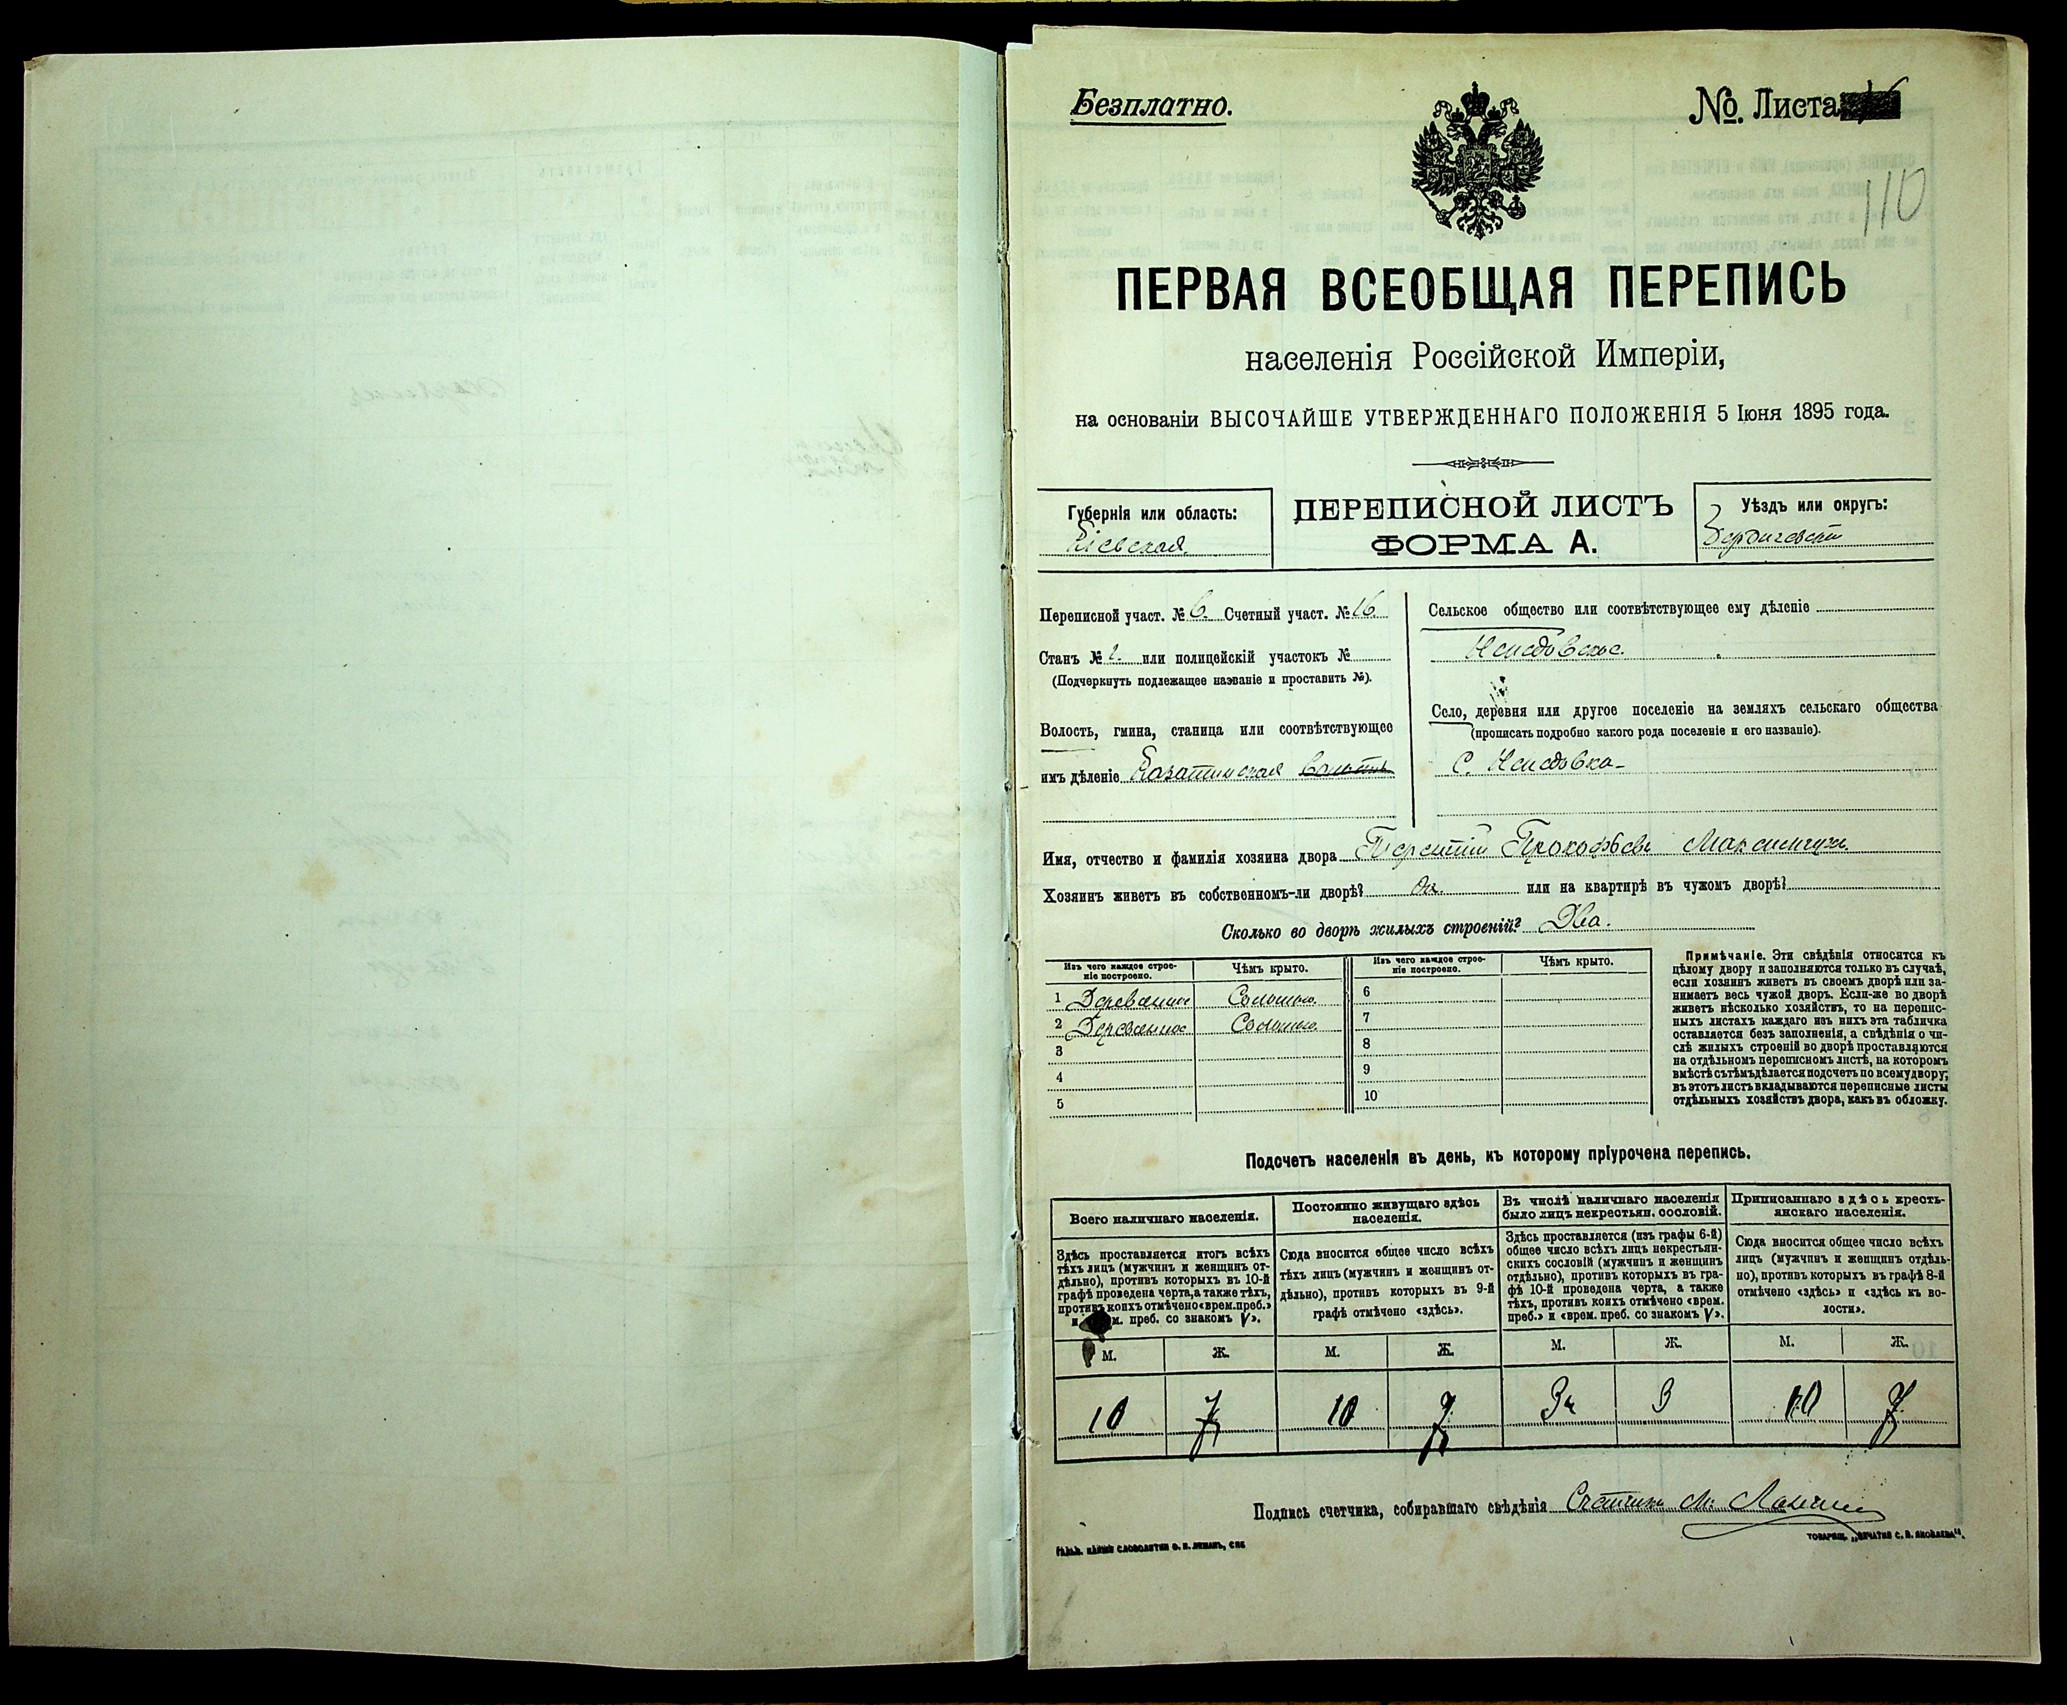 Безплатно.
№. Листа
110
ПЕРВАЯ ВСЕОБЩАЯ ПЕРЕПИСЬ
населенія Россійской Имперіи,
на основаніи ВЫСОЧАЙШЕ УТВЕРЖДЕННАГО ПОЛОЖЕНІЯ 5 Іюня 1895 года.
Губернія или область:
Кіевская
ПЕРЕПИСНОЙ ЛИСТЪ
ФОРМА А.
Уѣздъ или округъ:
Бердичевскій
Переписной участ. № 6. Счетный участ. № 16.
Станъ № 2. или полицейскій участокъ №
(Подчеркнуть подлежащее названіе и проставить №).
Волость, гмина, станица или соотвѣтствующее
имъ дѣленіе Казатинская волость
Сельское общество или соотвѣтствующее ему дѣленіе
Село, деревня или другое поселеніе на земляхъ сельскаго общества
(прописать подробно какого рода поселеніе и его названіе).
С.
Имя, отчество и фамилія хозяина двора Терентій Прокофьевъ Максимчукъ
Хозяинъ живетъ въ собственномъ-ли дворѣ? да. или на квартирѣ въ чужомъ дворѣ?
Сколько во дворѣ жилыхъ строеній? Два.
Изъ чего каждое строе-
ніе построено.
Чѣмъ крыто.
Изъ чего каждое строе-
ніе построено.
Чѣмъ крыто.
1 Деревянное Соломою
2 Деревянное Соломою
3
4
5
6
7
8
9
10
Примѣчаніе. Эти свѣдѣнія относятся къ
цѣлому двору и заполняются только въ случаѣ,
если хозяинъ живетъ въ своемъ дворѣ или за-
нимаетъ весь чужой дворъ. Если-же во дворѣ
живетъ нѣсколько хозяйствъ, то на перепис-
ныхъ листахъ каждаго изъ нихъ эта табличка
оставляется безъ заполненія, а свѣдѣнія о чи-
слѣ жилыхъ строеній во дворѣ проставляются
на отдѣльномъ переписномъ листѣ, на которомъ
вмѣстѣ съ тѣмъ дѣлается подсчетъ по всему двору;
въ этотъ листъ вкладываются переписные листы
отдѣльныхъ хозяйствъ двора, какъ въ обложку.
Подсчетъ населенія въ день, къ которому пріурочена перепись.
Всего наличнаго населенія.
Здѣсь проставляется итогъ всѣхъ
тѣхъ лицъ (мужчинъ и женщинъ от-
дѣльно), противъ которыхъ въ 10-й
графѣ проведена черта, а также тѣхъ,
противъ коихъ отмѣчено «врем. преб.»
преб. со знакомъ V».
Постоянно живущаго здѣсь
населенія.
Сюда вносится общее число всѣхъ
тѣхъ лицъ (мужчинъ и женщинъ от-
дѣльно), противъ которыхъ въ 9-й
графѣ отмѣчено «здѣсь».
Въ числѣ наличнаго населенія
было лицъ некрестьян. сословій.
Здѣсь проставляется (изъ графы 6-й)
общее число всѣхъ лицъ некрестьян-
скихъ сословій (мужчинъ и женщинъ
отдѣльно), противъ которыхъ въ гра-
фѣ 10-й проведена черта, а также
тѣхъ, противъ коихъ отмѣчено «врем.
преб.» и «врем. преб. со знакомъ V».
Приписаннаго здѣсь кресть-
янскаго населенія.
Сюда вносится общее число всѣхъ
лицъ (мужчинъ и женщинъ отдѣль-
но), противъ которыхъ въ графѣ 8-й
отмѣчено «здѣсь» и «здѣсь къ во-
лости».
М. Ж. М. Ж. М. Ж. М. Ж.
10 7 10 7 10 7
Подпись счетчика, собиравшаго свѣдѣнія Счетчикъ М.
ТОВАРИЩ. „ПЕЧАТНЯ С. П. ЯКОВЛЕВА“.